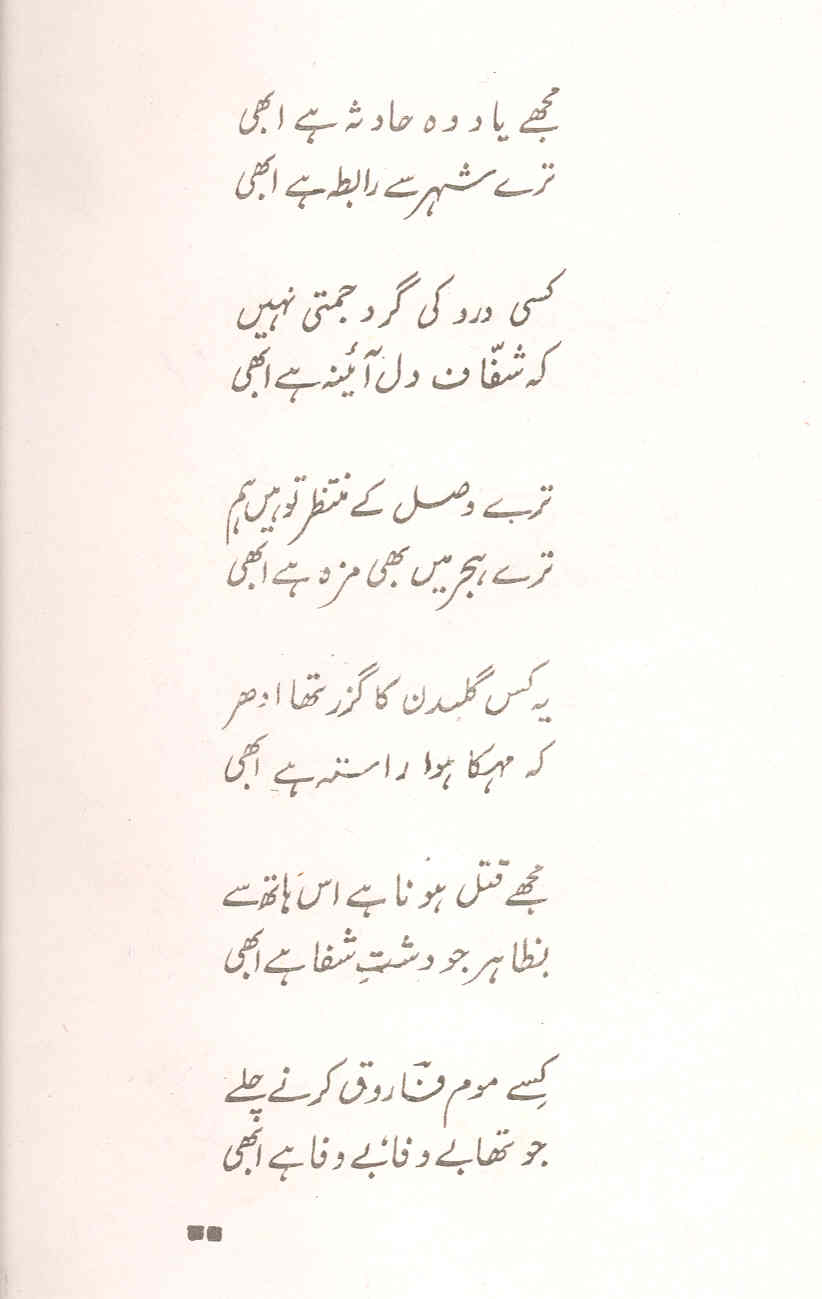 مجھے یاد وہ حادثہ ہے ابھی
ترے شہر سے رابطہ ہے ابھی
کسی درد کی گرد جمتی نہیں
کہ شفّاف دل آئینہ ہے ابھی
ترے وصل کے منتظر تو ہیں ہم
ترے ہجر میں بھی مزہ ہے ابھی
یہ کس گلبدن کا گزر تھا ادھر
کہ مہکا ہوا راستہ ہے ابھی
مجھے قتل ہونا ہے اس ہاتھ سے
بظاہر جو دشتِ شفا ہے ابھی
کِسے موم فاروق کرنے چلے
جو تھا بے وفا، بے وفا ہے ابھی